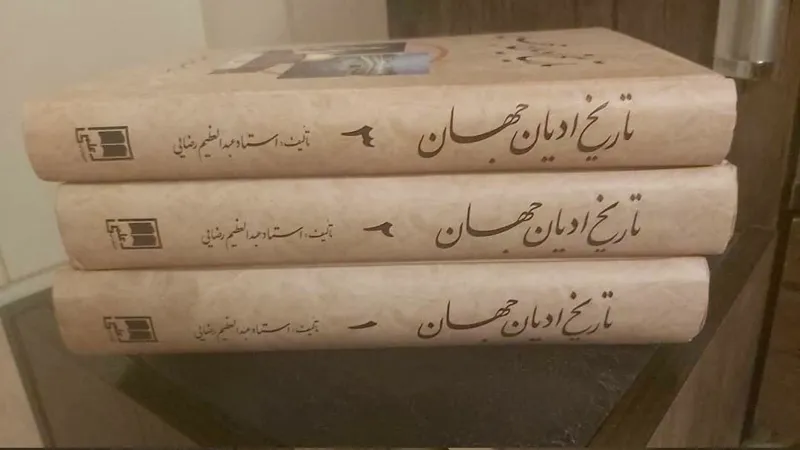 تاریخ ادیان جهان ۳ تألیف: استاد عبدالعظیم رضایی علمی
تاریخ ادیان جهان ۲ تألیف: استاد عبدالعظیم رضایی علمی
تاریخ ادیان جهان ۱ تألیف: استاد عبدالعظیم رضایی علمی